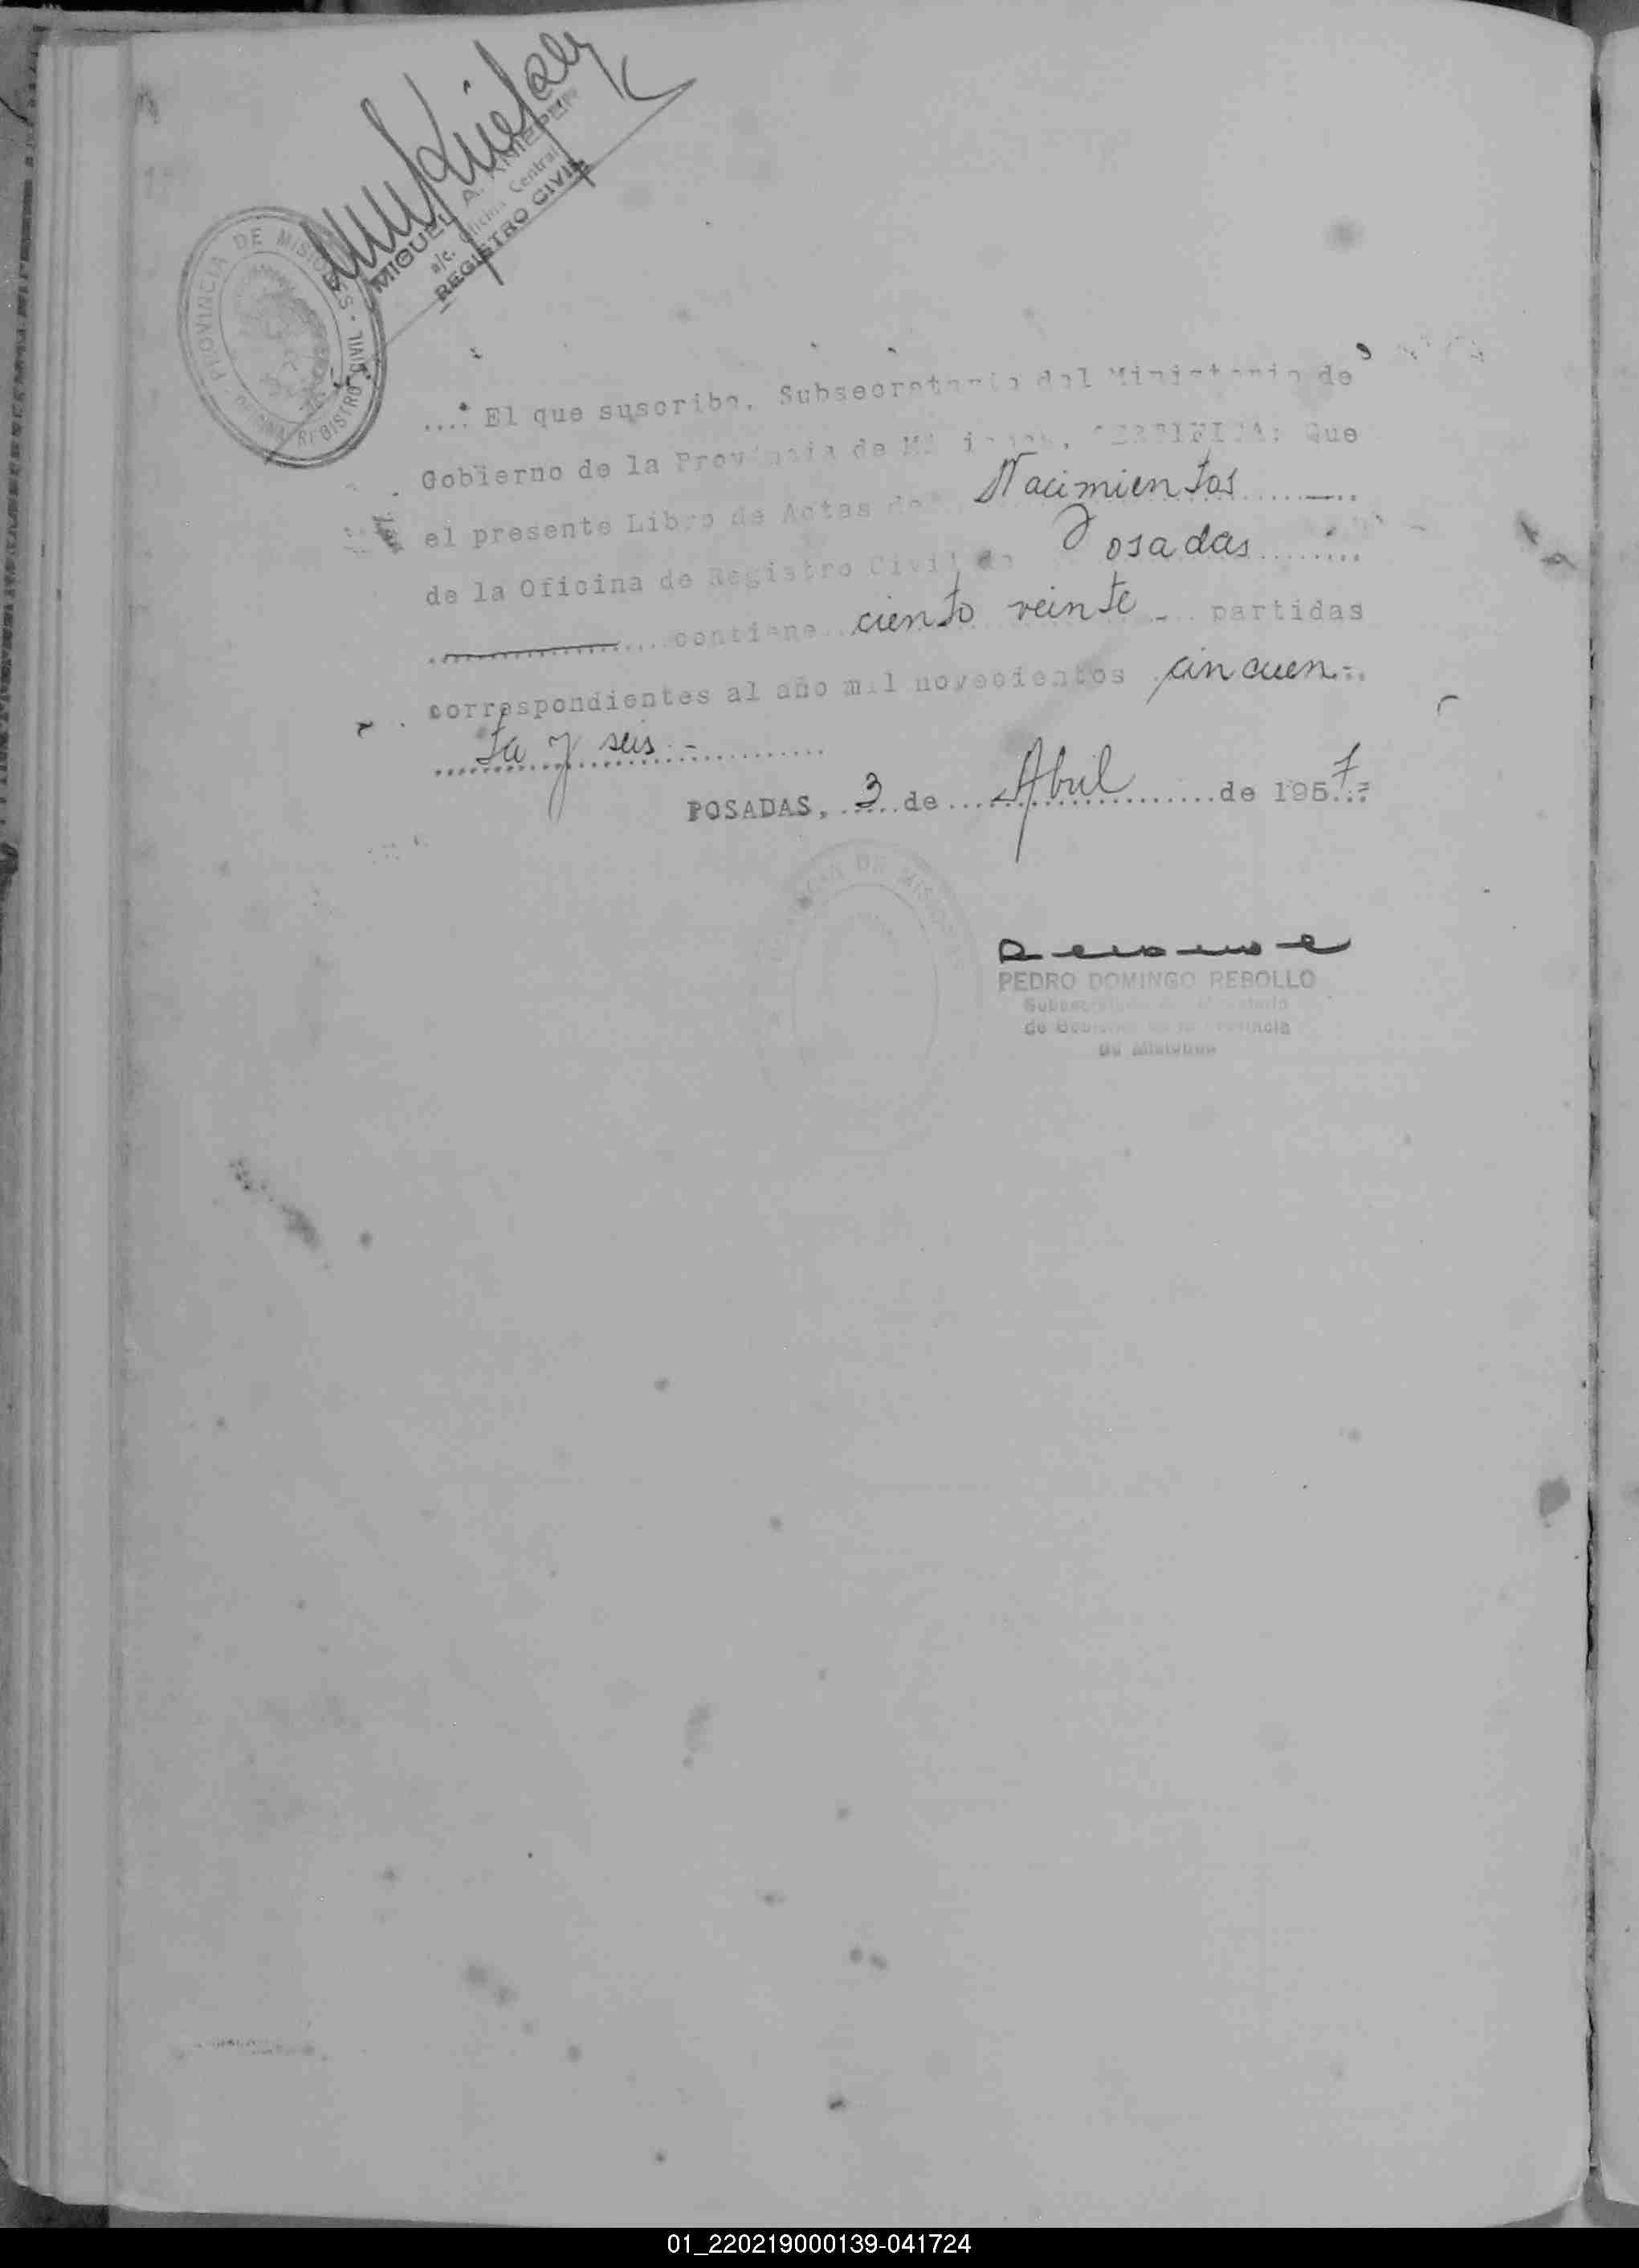 MIGUEL A. KNIEPER
a/c. Oficina Central
REGISTRO CIVIL
PROVINCIA DE MISIONES
REGISTRO CIVIL
....: El que suscribe, Subsecretario del Ministerio de
Gobierno de la Provincia de Misiones, CERTIFICA: Que
el presente Libro de Actas de Nacimientos
de la Oficina de Registro Civil de Posadas
contiene ciento veinte partidas
correspondientes al año mil novecientos cincuen-
ta y seis
POSADAS, 3 de Abril de 1957
PROVINCIA DE MISIONES
PEDRO DOMINGO REBOLLO
Subsecretario del Ministerio
de Gobierno de la Provincia
de Misiones
01_220219000139-041724